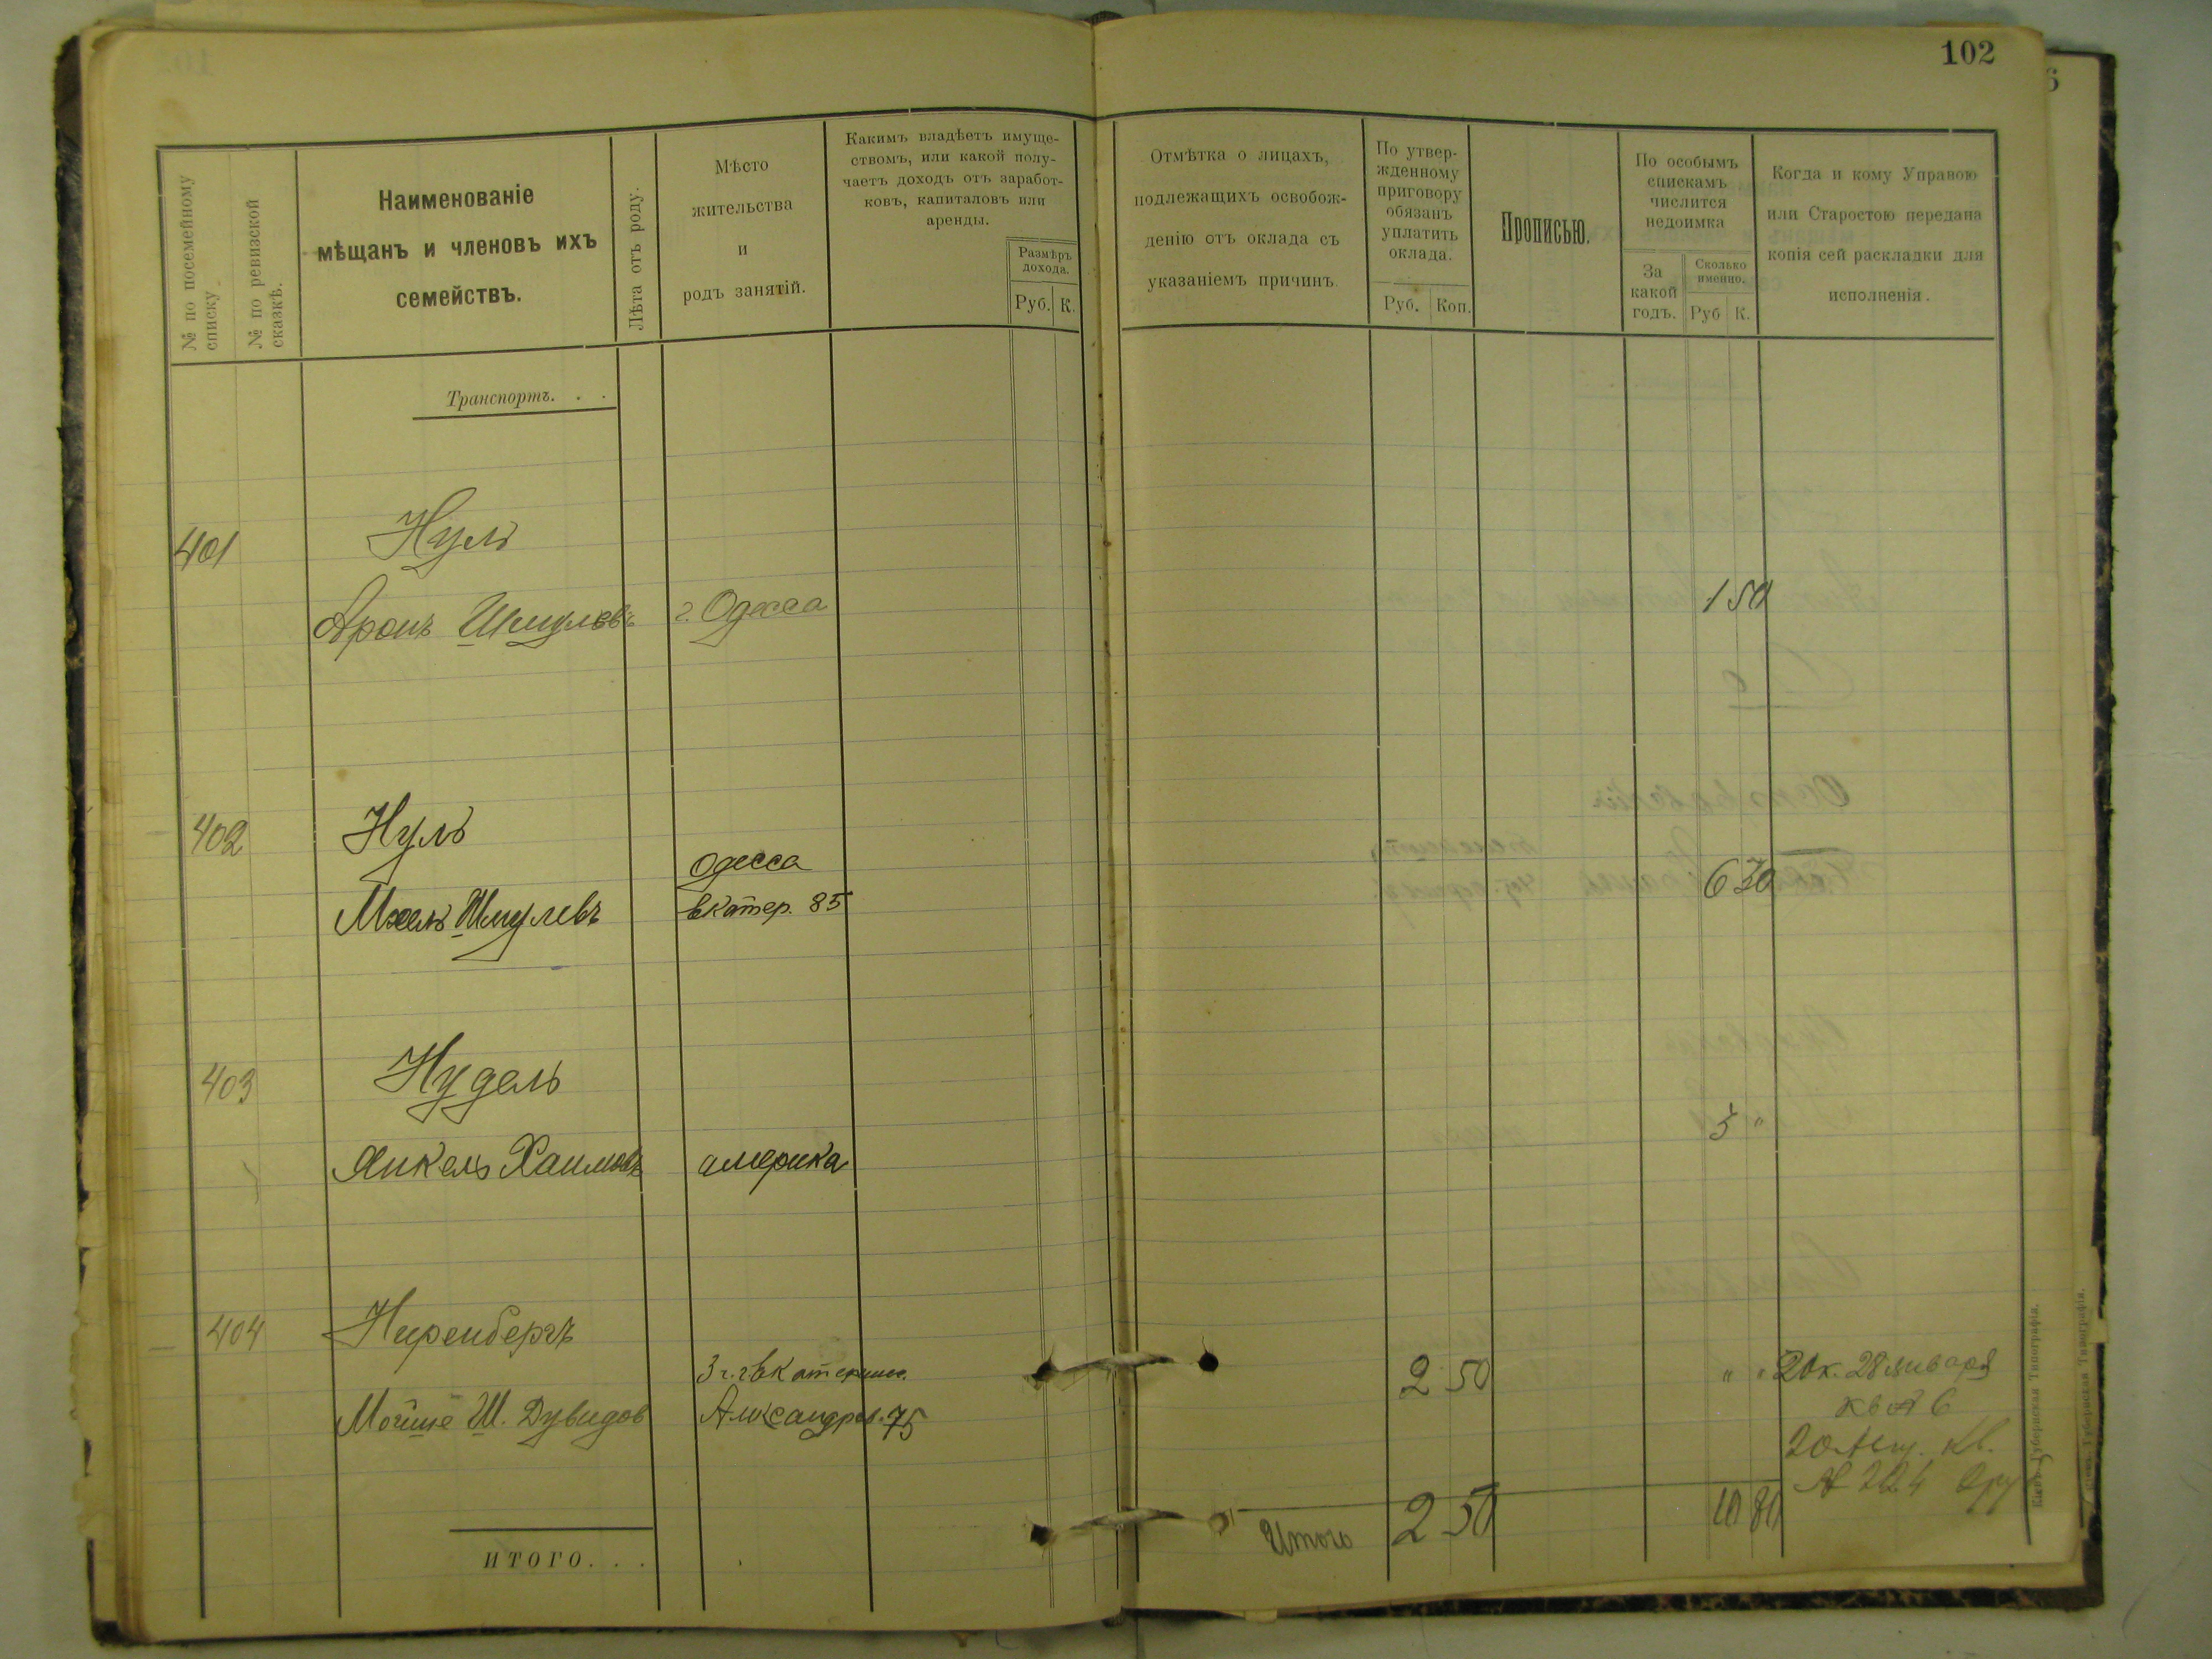 102
№ по посемейному
списку
№ по ревизской
сказкѣ.
Наименованіе
мѣщанъ и членовъ ихъ
семействъ.
Лѣта отъ роду.
Мѣсто
жительства
и
родъ занятій.
Какимъ владѣетъ имуще-
ствомъ, или какой полу-
чаетъ доходъ отъ заработ-
ковъ, капиталовъ или
аренды.
Размѣръ
дохода.
Руб. К.
Отмѣтка о лицахъ,
подлежащихъ освобож-
денію отъ оклада съ
указаніемъ причинъ.
По утвер-
жденному
приговору
обязанъ
уплатить
оклада.
Руб. Коп.
Прописью.
По особымъ
спискамъ
числится
недоимка
За
какой
годъ.
Сколько
именно.
Руб К.
Когда и кому Управою
или Старостою передана
копія сей раскладки для
исполненія.
Транспортъ. . .
401 Нуль
Аронъ Шмулевъ г. Одесса 1 50
402 Нуль
Одесса
Шмулевъ Екатер. 85 6 30
403 Нудель
3 "
Янкель Хаимовъ америка
404 Ниренбергъ
2 50 " " 28 января
кв № 6
Мойше Ш. Дувидов Александров. 75
кв.
№ 224
Итого 2 50 10 80
ИТОГО. . .
Кіевъ, Губернская Типографія.
Губернская Типографія.
6